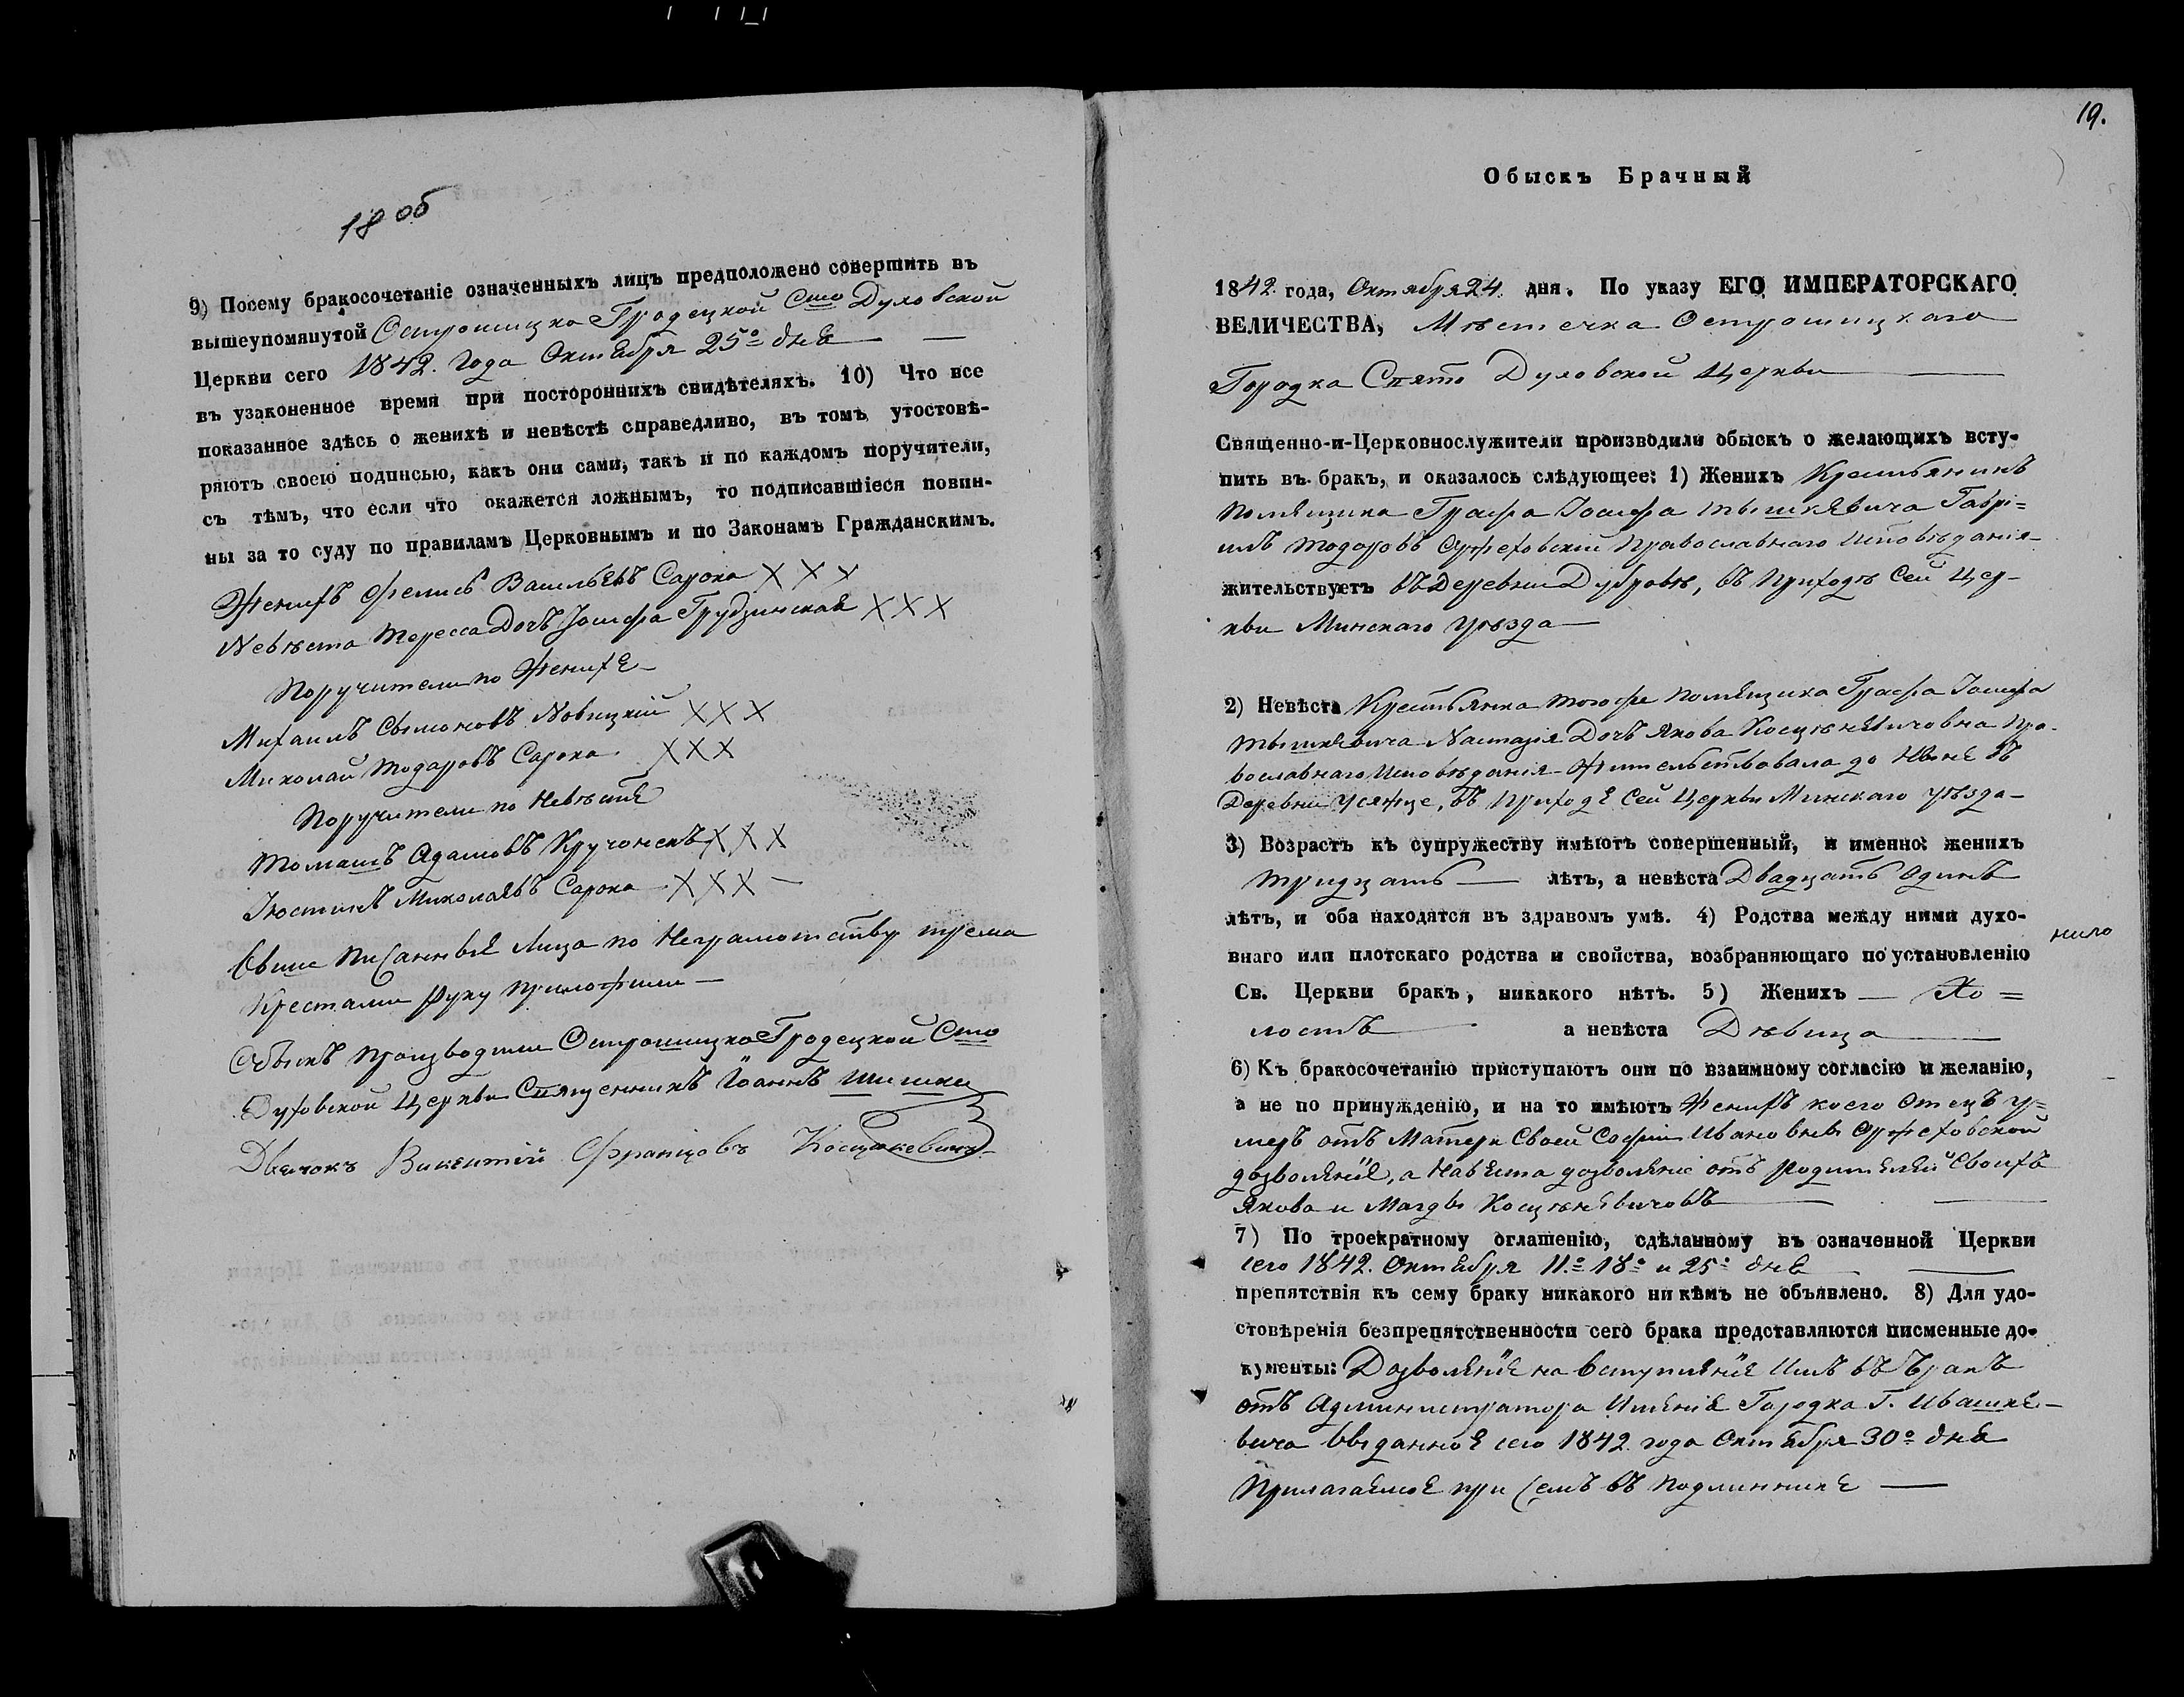 18 об
9) Посему бракосочетаніе означенныхъ лицъ предположено совершить въ
вышеупомянутой Острошицко Гродецкой Сто Духовской
Церкви сего 1842. Года Октября 25º дня
въ узаконенное время при постороннихъ свидѣтеляхъ. 10) Что все
показанное здѣсь о женихѣ и невѣстѣ справедливо, въ томъ утостовѣ-
ряютъ своею подписью, какъ они сами, такъ и по каждомъ поручители,
съ тѣмъ, что если что окажется ложнымъ, то подписавшіеся повин-
ны за то суду по правиламъ Церковнымъ и по Законамъ Гражданскимъ.
Женихъ Васильевъ Сарока XXX
Невѣста Тересса Дочъ Іосифа Грудзинская XXX
Поручители по Женихе
Михаилъ Сымоновъ Новицкій XXX
Миколай Тодоровъ Сарока XXX
Поручители по Невѣсте
Томашъ Адамовъ XXX
Іюстинъ Миколаевъ Сарока XXX
Свыше Писанные Лица по Неграмотству трема
Крестами Руку Приложили
Обыскъ Производили Острошицко Гродецкой Сто
Духовской Церкви Священникъ Іоаннъ Шишка
Дьячокъ Викентій Францовъ
19.
Обыскъ Брачный
1842 года, Октября 24. дня. По указу ЕГО ИМПЕРАТОРСКАГО
ВЕЛИЧЕСТВА, Мѣстечка Острошицкаго
Городка Свято Духовской Церкви
Священно-и-Церковнослужители производили обыскъ о желающихъ всту-
пить въ бракъ, и оказалось слѣдующее: 1) Женихъ Крестьянинъ
Помещика Графа Іосифа Тышкевича Гаврі=
илъ Тодоровъ Оржеховскій Православнаго Исповѣданія
жительствуетъ въ Деревни Дубровѣ, въ Приходѣ Сей Цер-
кви Минскаго Уѣзда
2) Невѣста Крестьянка тогоже Помещика Графа Іосифа
Тышкевича Настазія Дочъ Якова Пра-
вославнаго Исповѣданія Жительствовала до Ныне въ
Деревни Усяжце, въ Приходе Сей Церкви Минскаго Уѣзда
3) Возрастъ къ супружеству имѣютъ совершенный, и именно: женихъ
Тридцать лѣтъ, а невѣста Двадцать Одинъ
лѣтъ, и оба находятся въ здравомъ умѣ. 4) Родства между ними духо-
внаго или плотскаго родства и свойства, возбраняющаго по установленію
Св. Церкви бракъ, никакого нѣтъ. 5) Женихъ Хо=
лостъ а невѣста Дѣвица
6) Къ бракосочетанію приступаютъ они по взаимному согласію и желанію,
а не по принужденію, и на то имѣютъ Женихъ коего Отецъ у=
меръ отъ Матери Своей Софіи Ивановны Оржеховской
дозволеніе, а Невеста дозволеніе отъ Родителей Своихъ
Якова и Магды
7) По троекратному оглашенію, сдѣланному въ означенной Церкви
сего 1842. Октября 11º 18º и 25º дня
препятствія къ сему браку никакого ни кѣмъ не объявлено. 8) Для удо-
стовѣренія безпрепятственности сего брака представляются писменные до-
кументы: Дозволеніе на Вступленіе Имъ въ Бракъ
отъ Администратора Имѣнія Городка Г. Ивашке-
вича Выданное сего 1842. года Октября 30º дня
Прилагаемое при Семъ въ Подлиннике